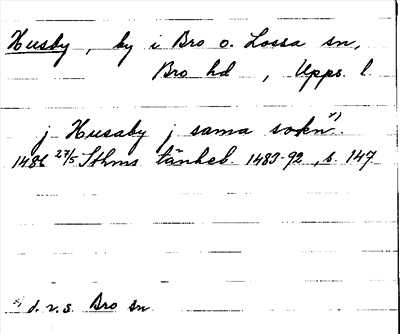 Husby, by i Bro o. Lossa sn,
Bro hd, Upps. l.
j Husaby j sama sokn x).
1486 27/5 Sthms tänkeb. 1483-92, s. 147
x) d.v.s. Bro sn